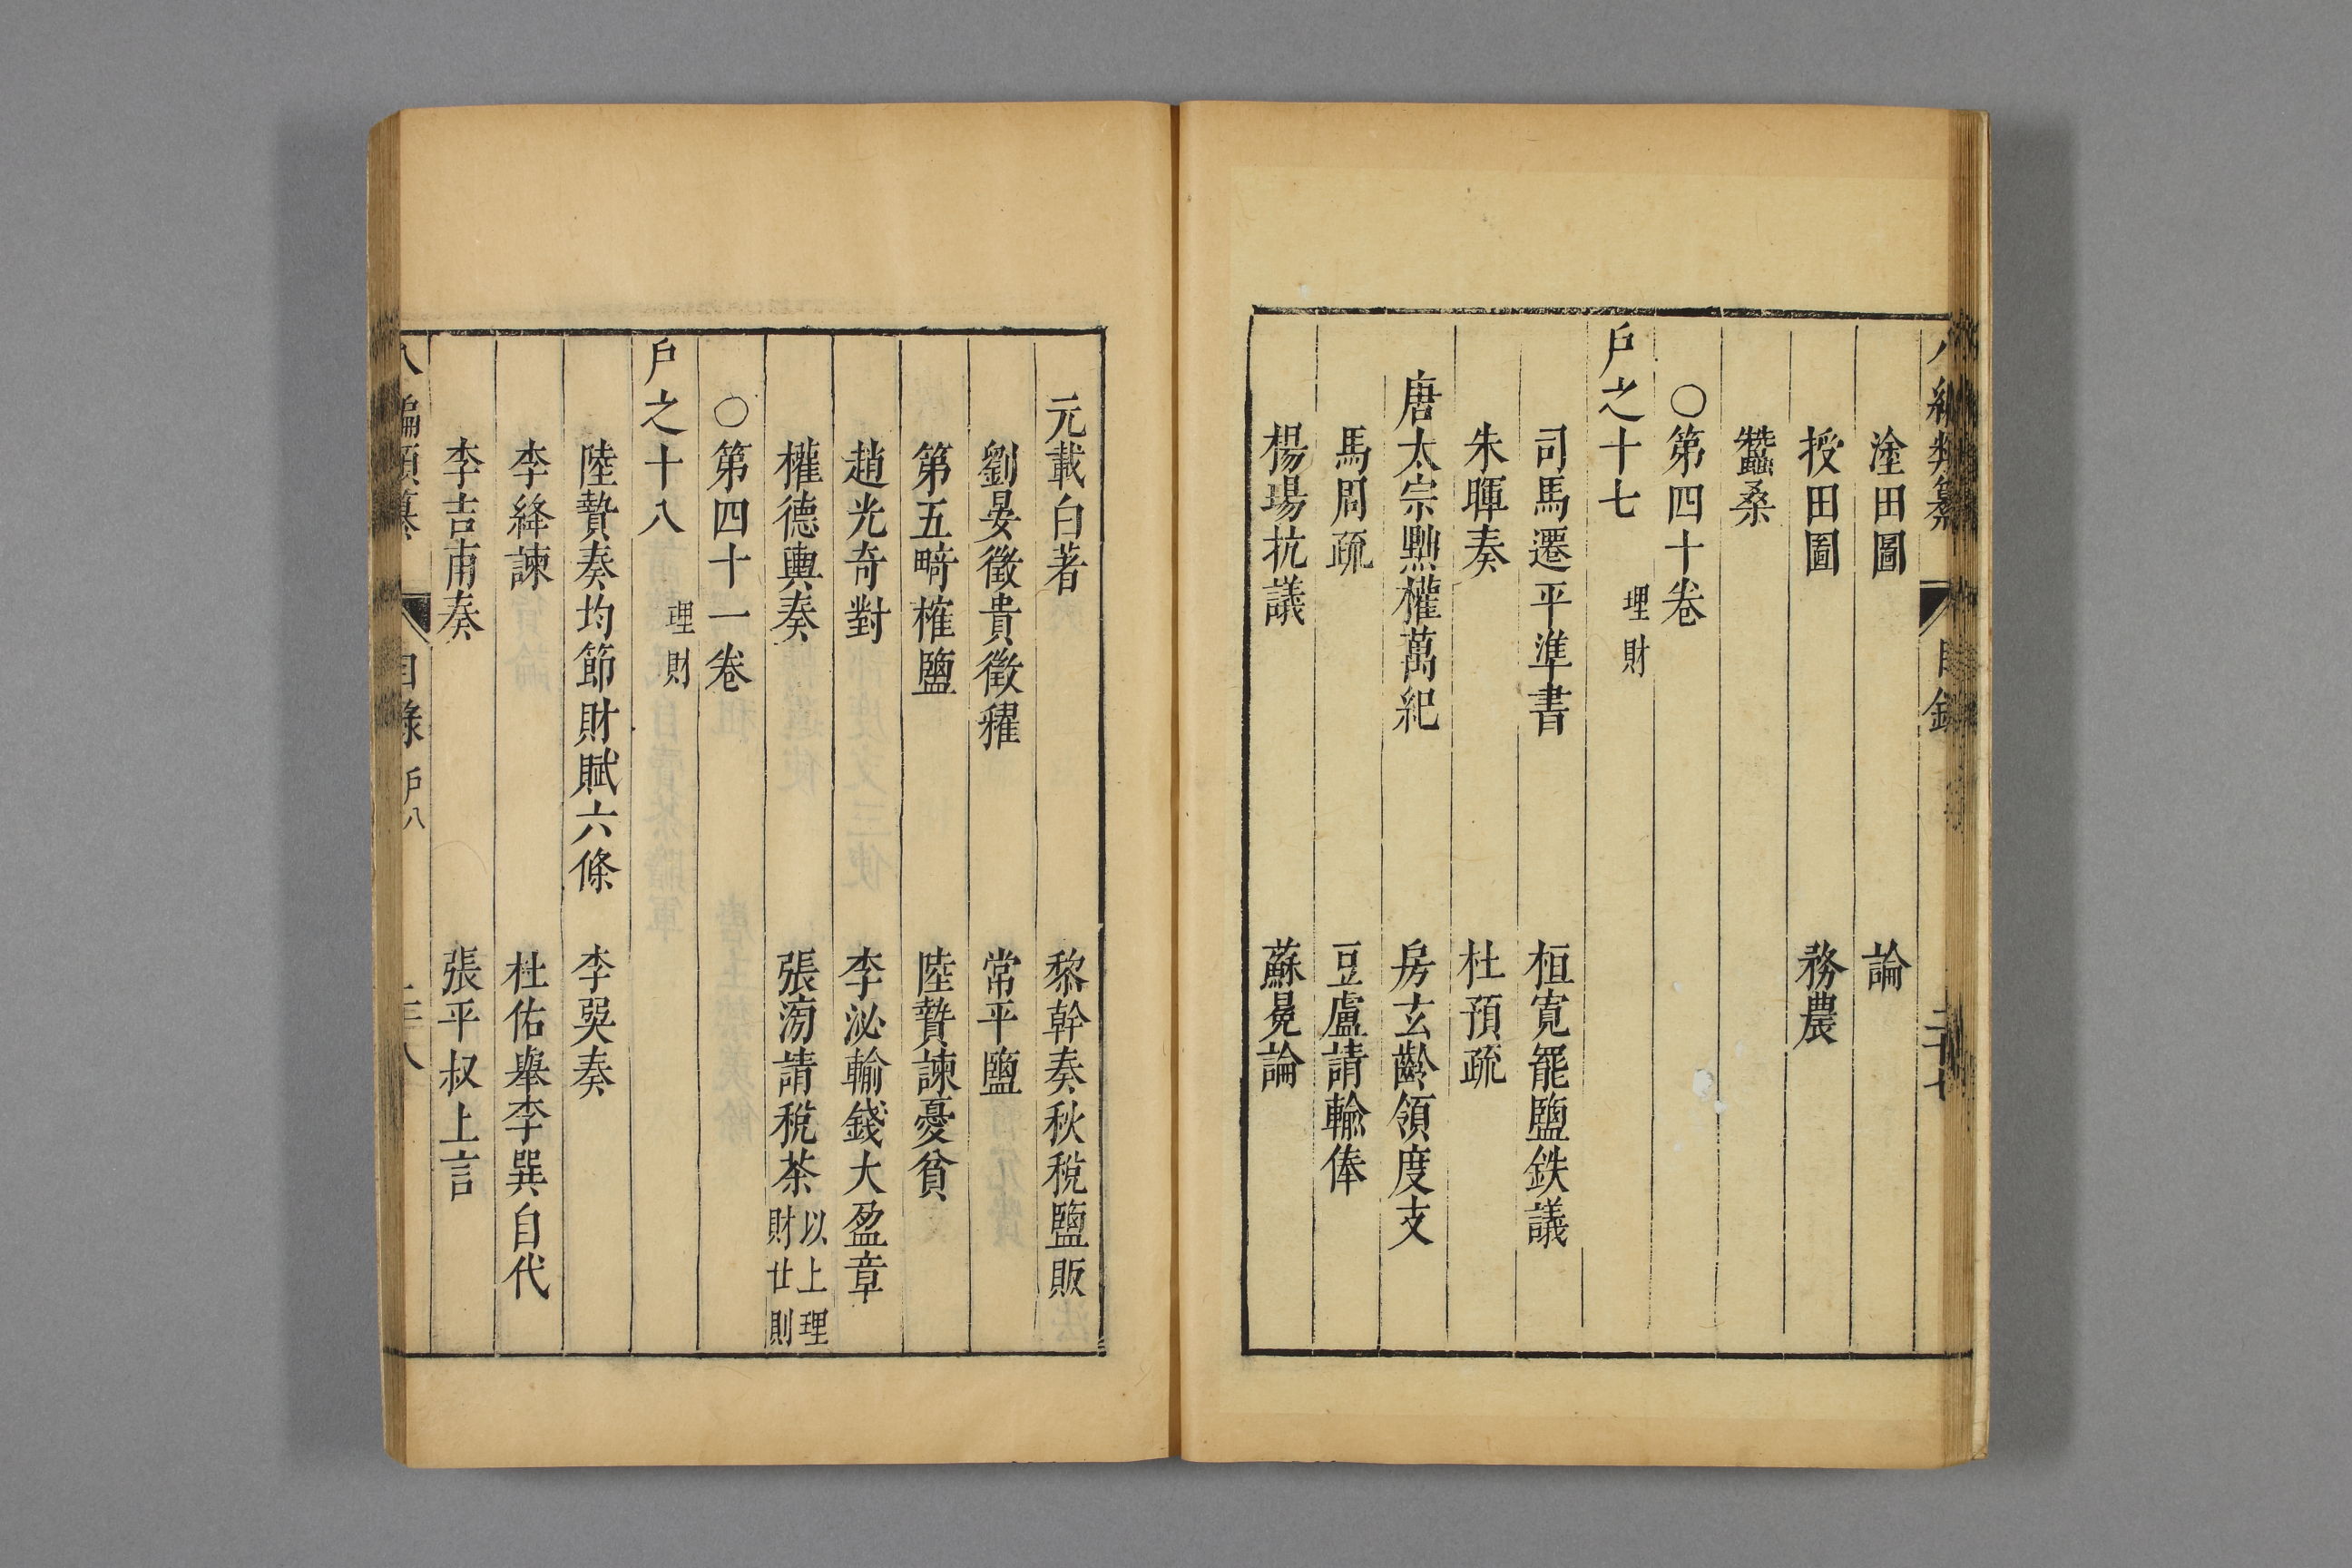 塗田圖　論
授田圖　務農
蠶桑
〇第四十卷
戶之十七　理財
司馬遷平準書　桓寬罷鹽鉄議
朱暉奏　杜預疏
唐太宗黜權萬紀　房玄齡領度支
馬周疏　豆盧請輸俸
楊瑒抗議　蘇冕論
元載白著　黎幹奏秋稅鹽販
劉晏徵貴徵糴　常平鹽
第五畸榷鹽　陸贄諫憂貧
趙光奇對　李泌輸錢大盈章
權德輿奏　張滂請稅茶　以上理財廿則
〇第四十一卷
戶之十八　理財
陸贄奏均節財賦六條　李巽奏
李絳諫　杜佑舉李巽自代
李吉甫奏　張平叔上言
目錄　戶八